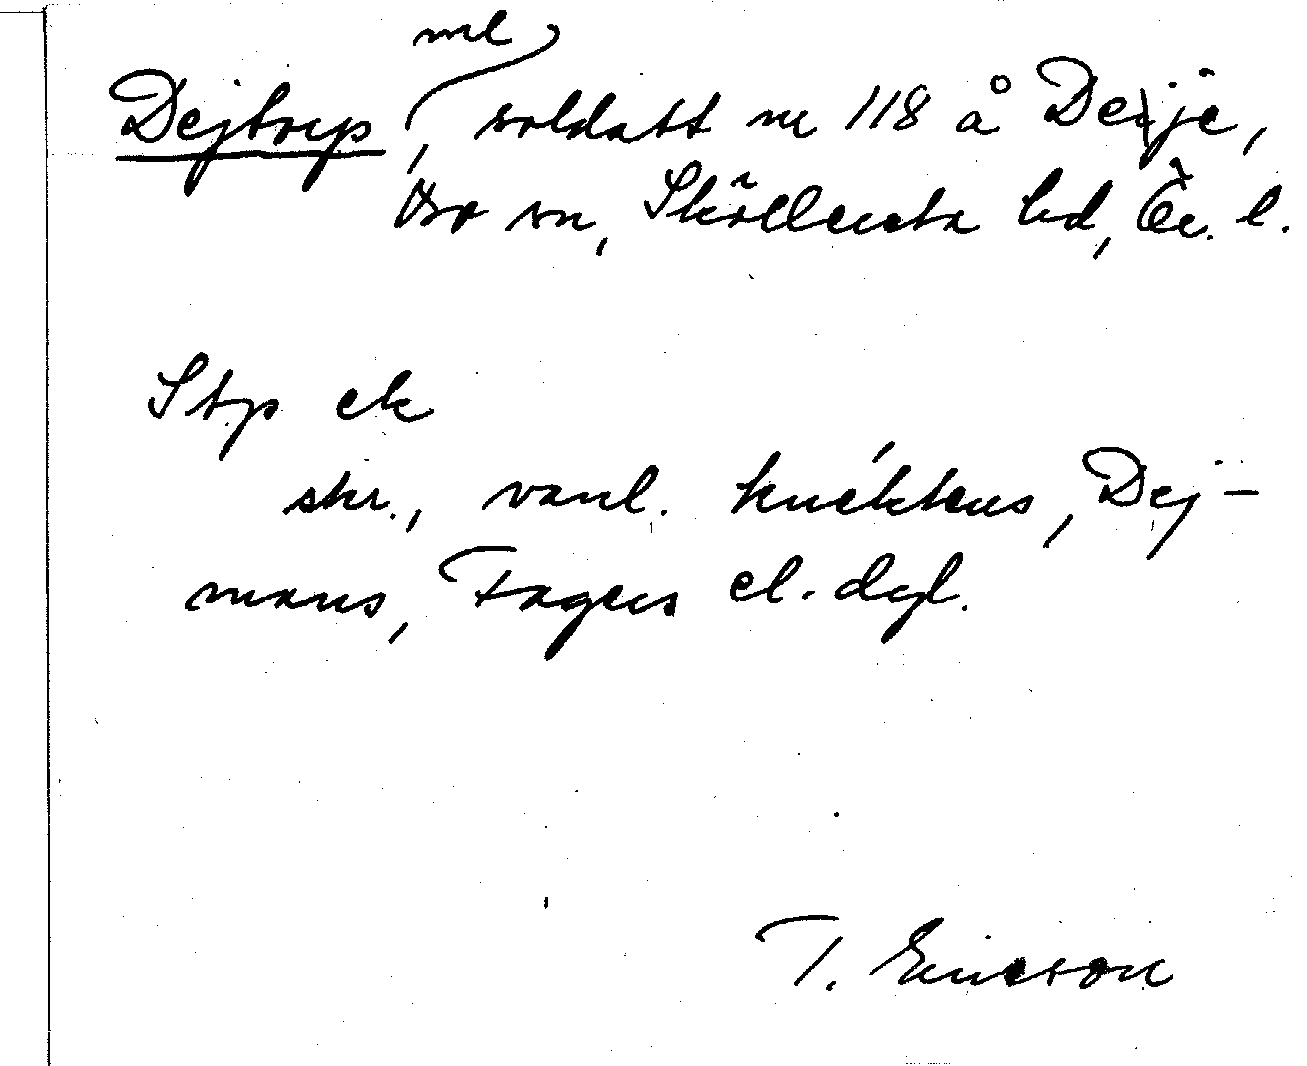 ml
Dejtorp, soldatt nr 118 å Deije,
Bo sn, Sköllersta hd, Ör. l.
Stp ek
skr., vanl. knéktens, Dej-
mans, Fagers el. dyl.
T. Ericson